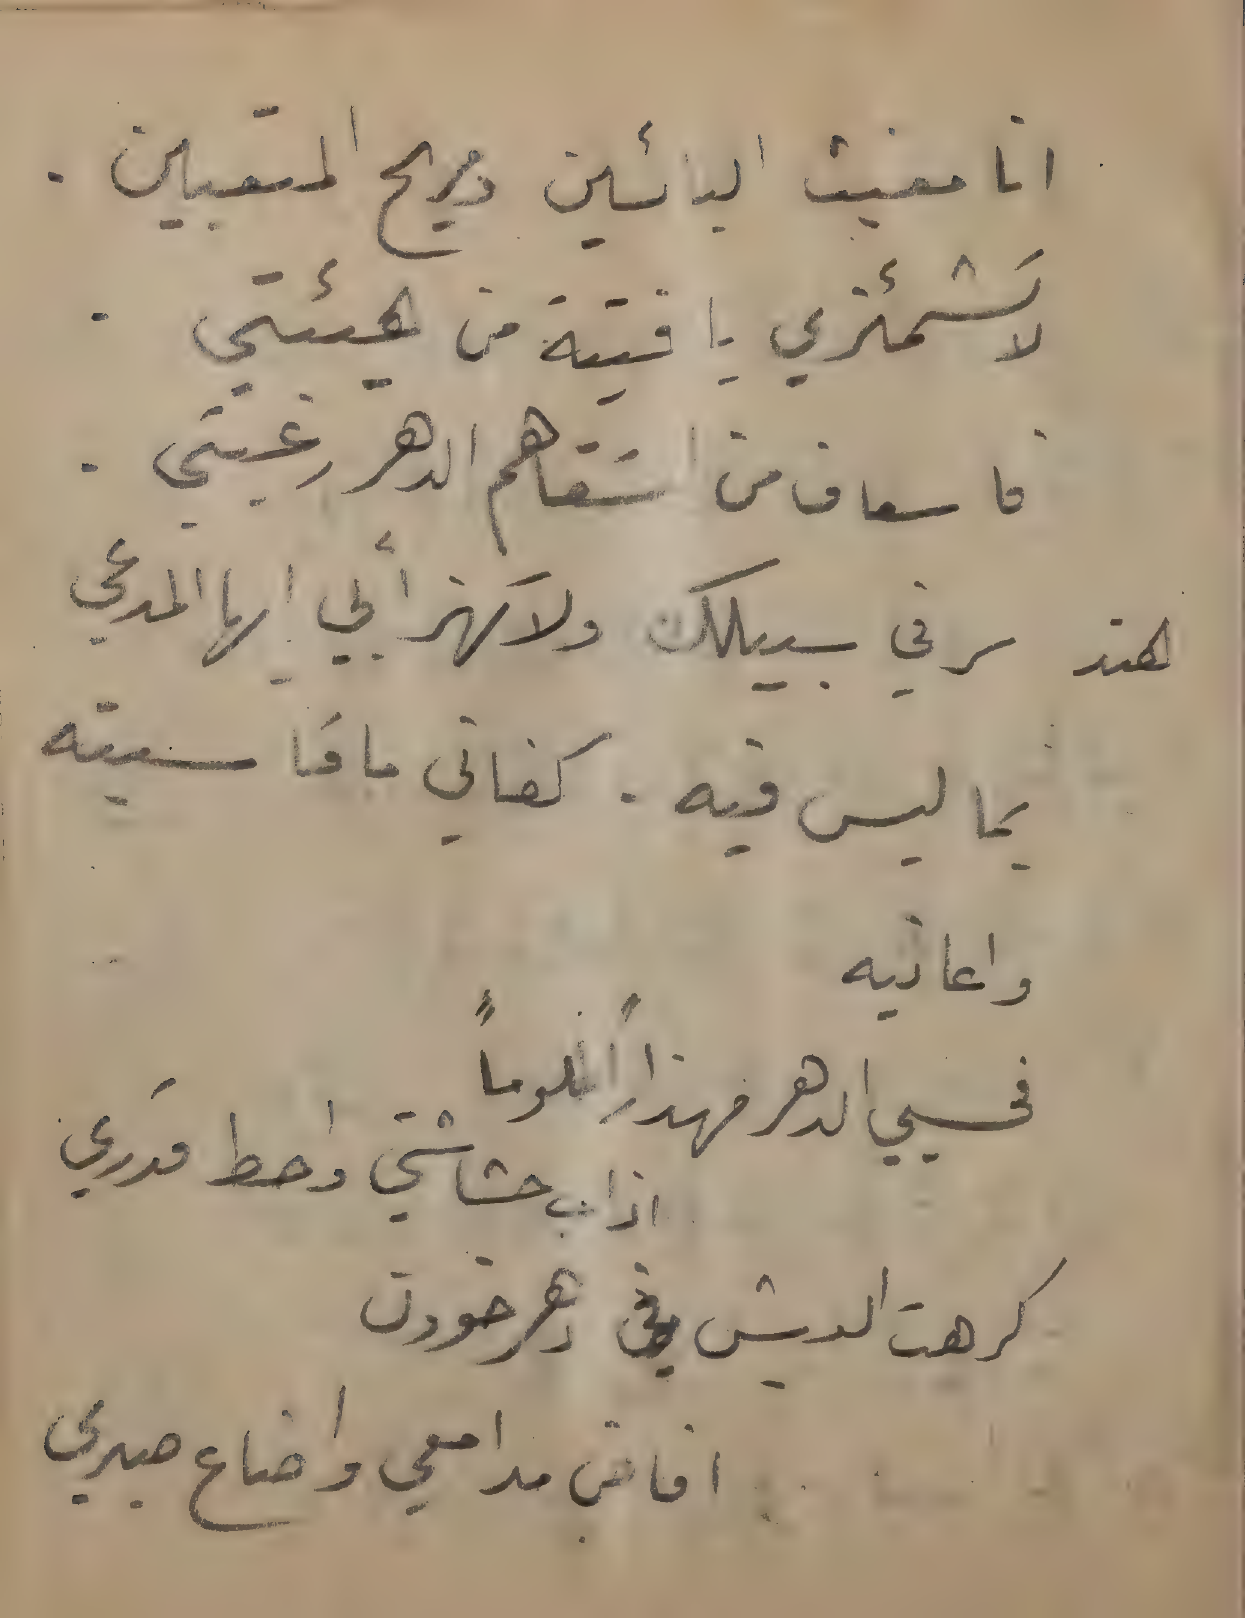 انا مغيث البائسين ومريح المتعبين .
لا تشمئزي يا فتية من هيئتي .
فاسعاف من اشقاهم الدهر رغبتي .
هند سر في سبيلك ولا تهزأ بي ايها المدعي
بما ليس فيه . كفاني ما قاسيته
واعانيه
فحسبي الدهر مهذاراً ظلوماً
اذاب حشاشتي واحط قدري
كرهت العيش في دهر خؤون
افاض مدامعي واضاع صبري